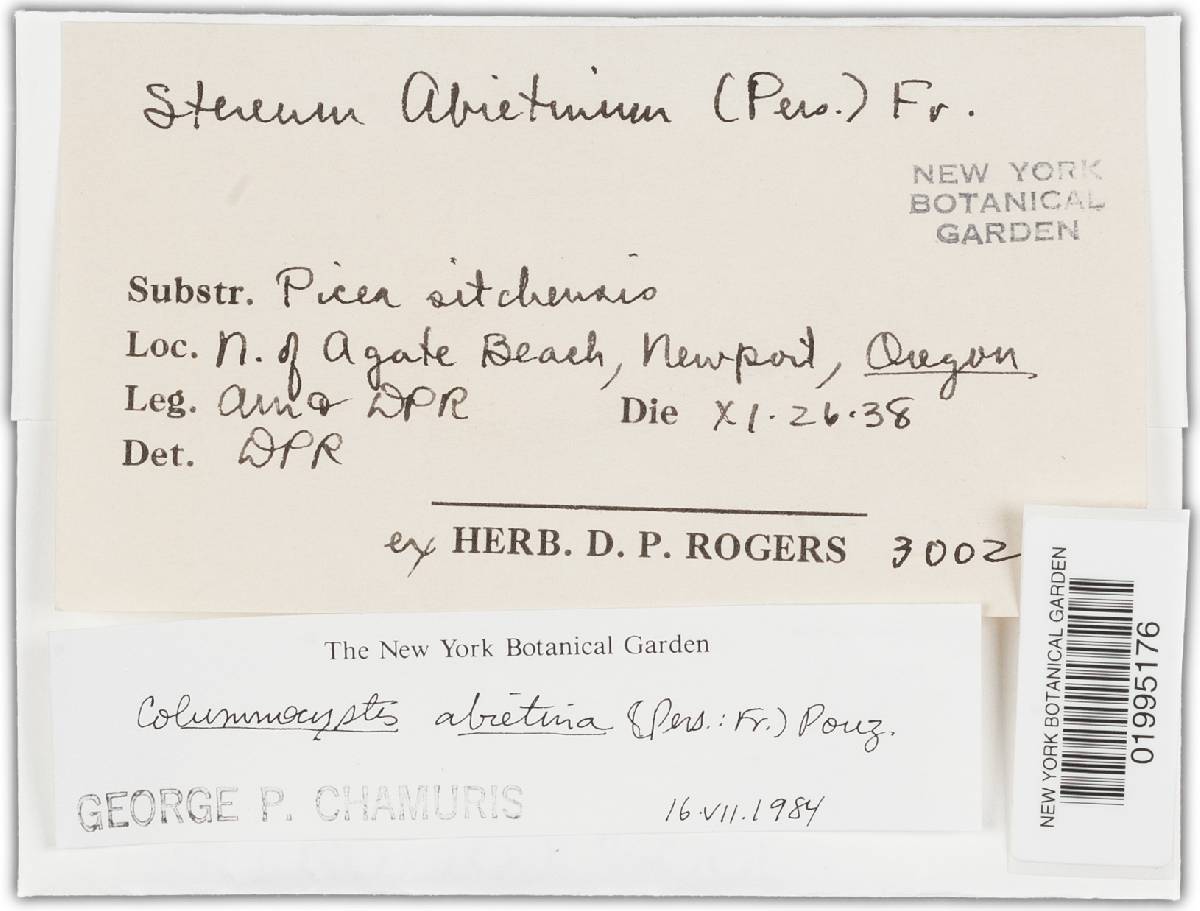 Stereum Abietinum (Pers.) Fr.
NEW YORK
BOTANICAL
GARDEN
Substr. Picea sitchensis
Loc. N. of Agate Beach, Newport, Oregon
Leg. DPR Die XI.26.38
Det. DPR
ex HERB. D. P. ROGERS 3002
The New York Botanical Garden
Columnocystis abietina (Pers.: Fr.) Pouz.
GEORGE P. CHAMURIS 16.VII.1984
NEW YORK BOTANICAL GARDEN
01995176